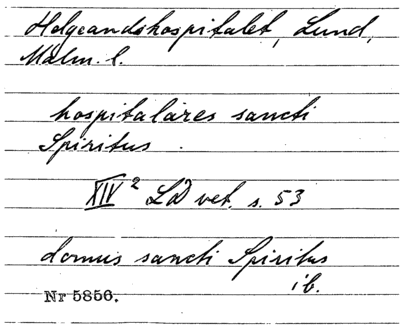 Helgeandshospitalet, Lund,
Malm. l.
hospitalares sancti
Spiritus
XIV² LD vet. s. 53
domus sancti Spiritus
ib.
Nr 5856.